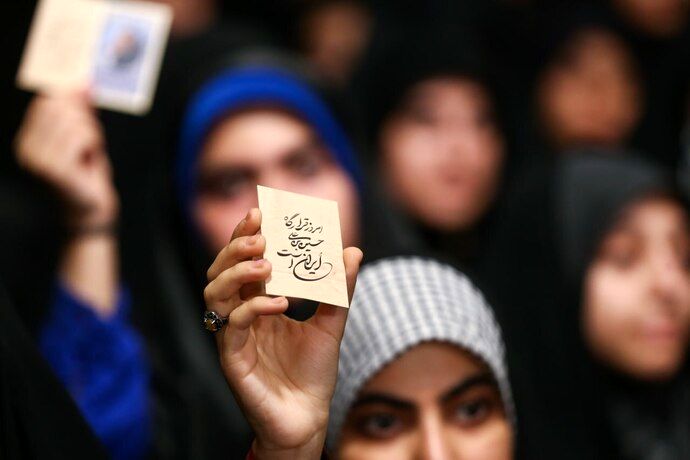 امروز قرارگاه
حسین بن علی
ایران است